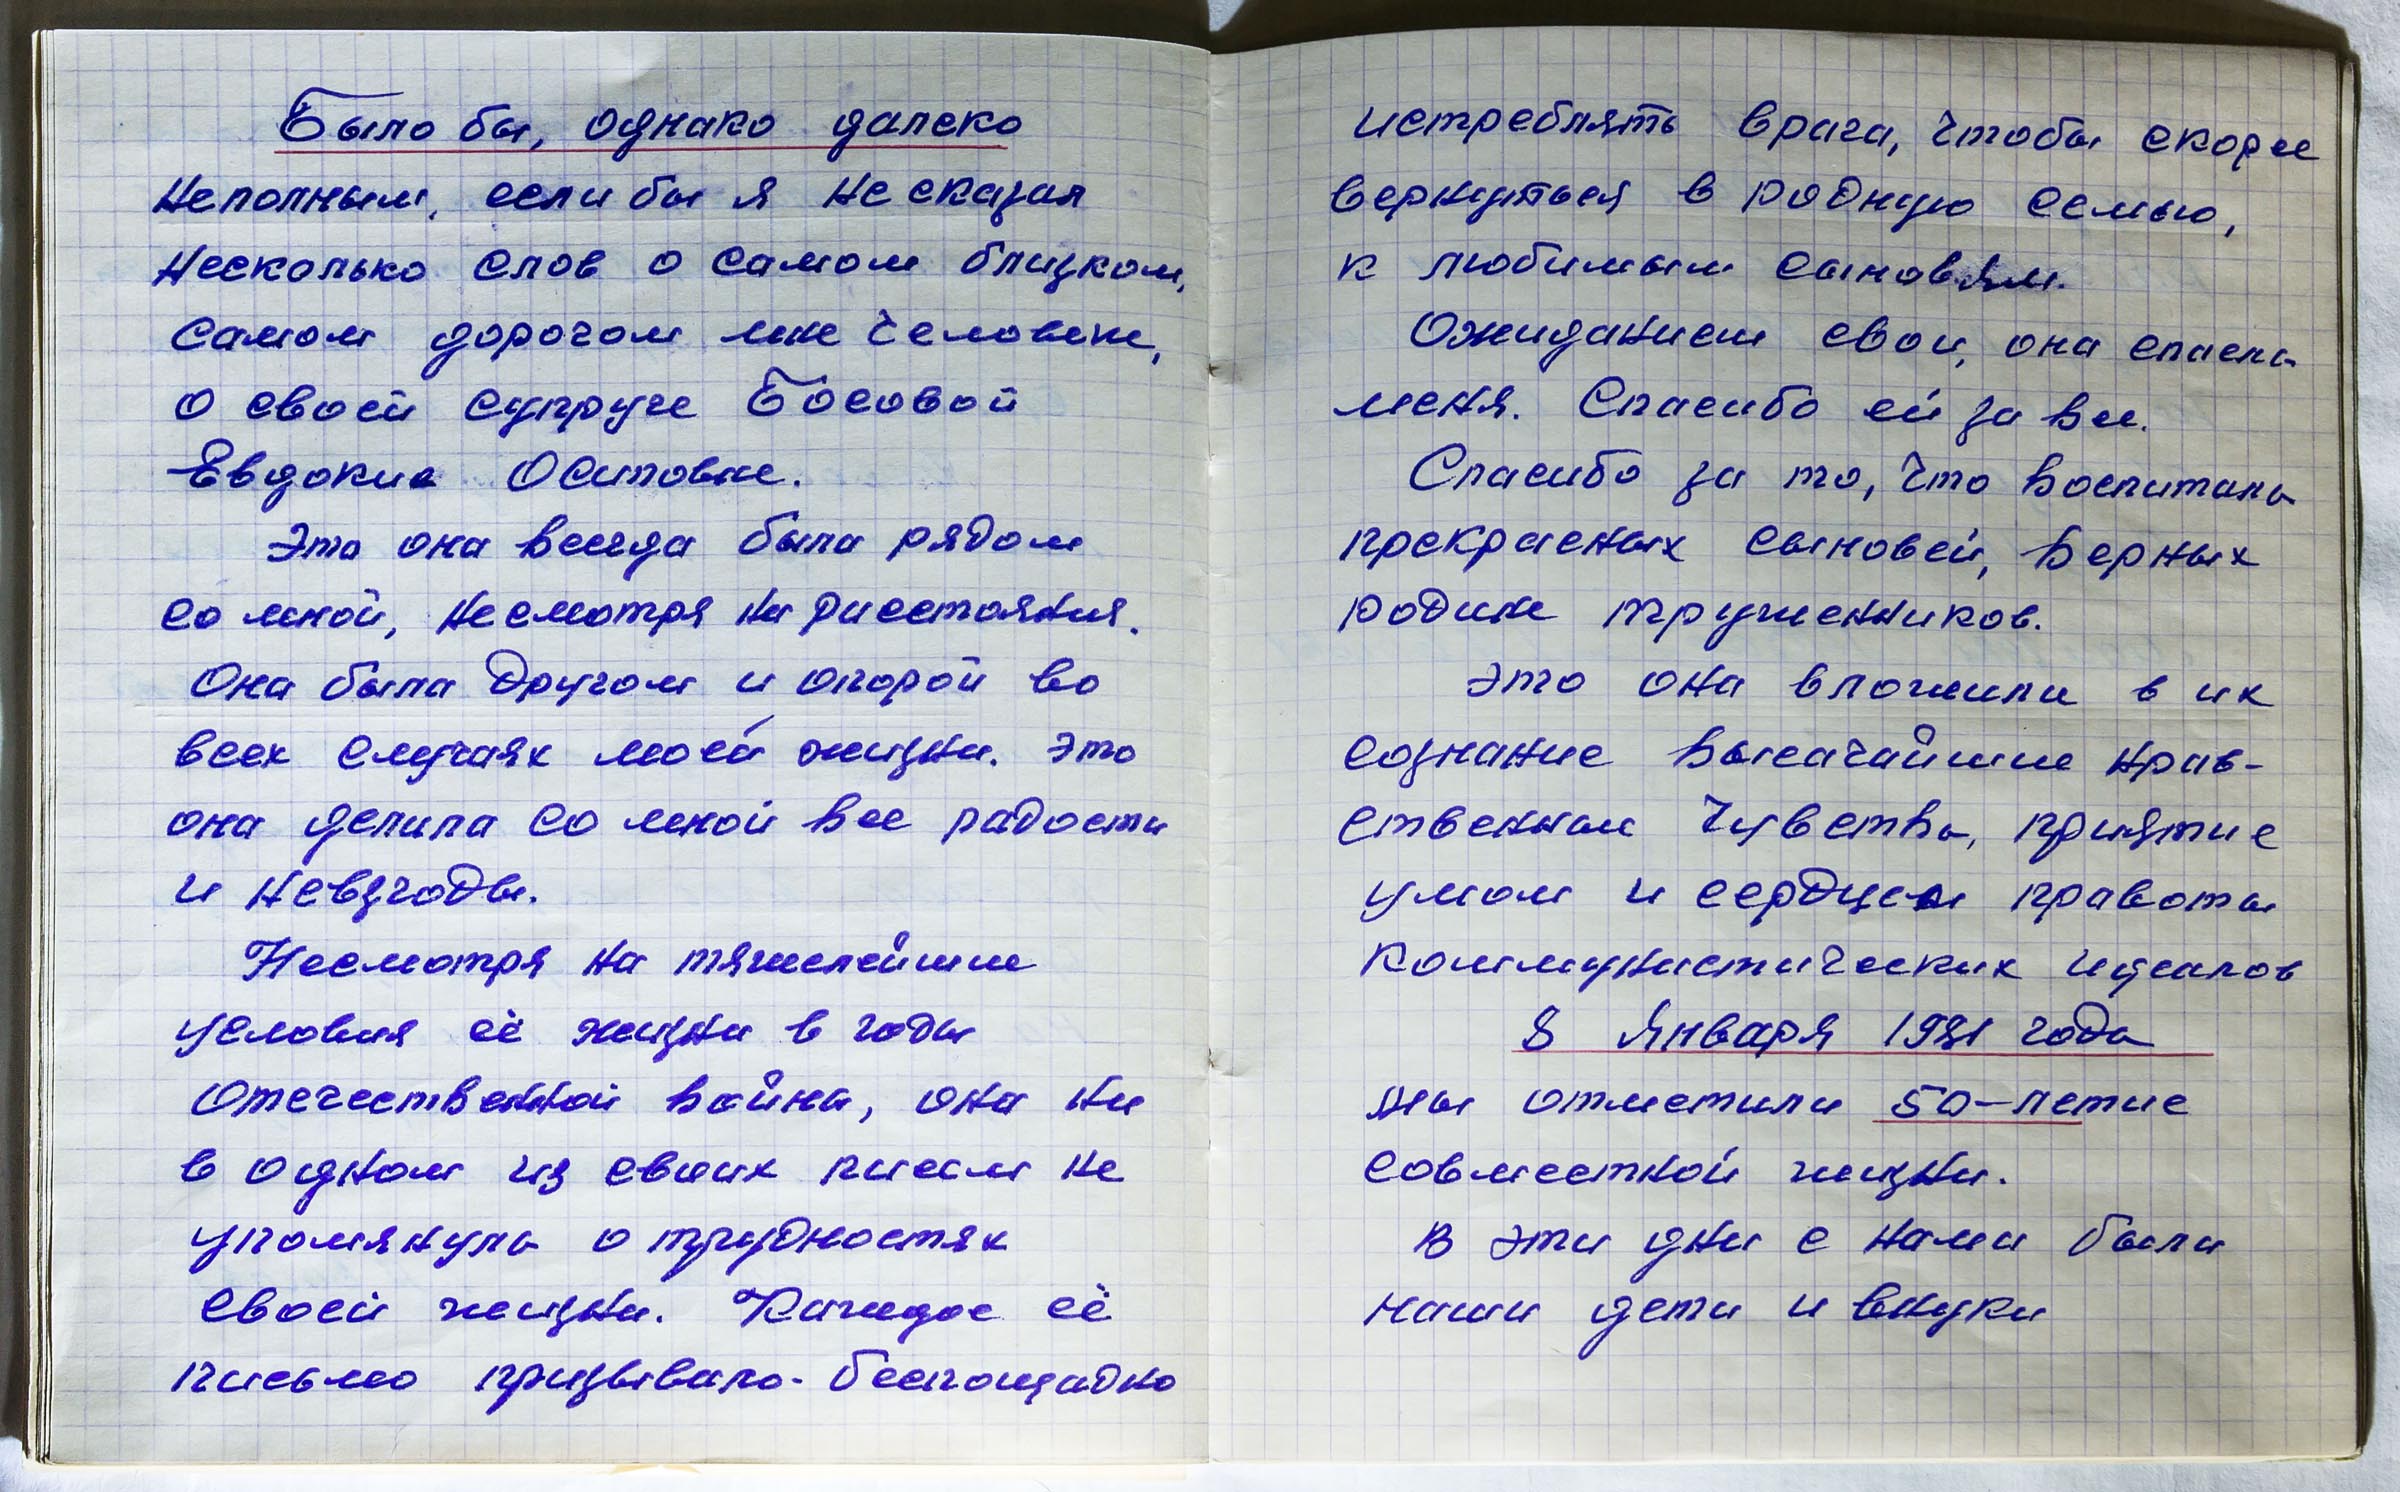 Было бы, однако далеко
неполным, если бы я не сказал
несколько слов о самом близком,
самом дорогом мне человеке,
о своей супруге Босовой
Евдокие Осиповне.
Это она всегда была рядом
со мной, несмотря на расстояния.
Она была другом и опорой во
всех случаях моей жизни. Это
она делила со мной все радости
и невзгоды.
Несмотря на тяжелейшие
условия её жизни в годы
Отечественной войны, она ни
в одном из своих писем не
упомянула о трудностях
своей жизни. Каждое её
письмо призывало - беспощадно
истреблять врага, чтобы скорее
вернуться в родную семью,
к любимым сыновьям.
Ожиданием свои, она спасла
меня. Спасибо ей за все.
Спасибо за то, что воспитала
прекрасных сыновей, верных
родине тружеников.
Это она вложила в их
сознание высочайшие нрав-
ственные чувства, приятие
умом и сердцем правоты
коммунистических идеалов
8 Января 1981 года
мы отметили 50-летие
совместной жизни.
В эти дни с нами были
наши дети и внуки